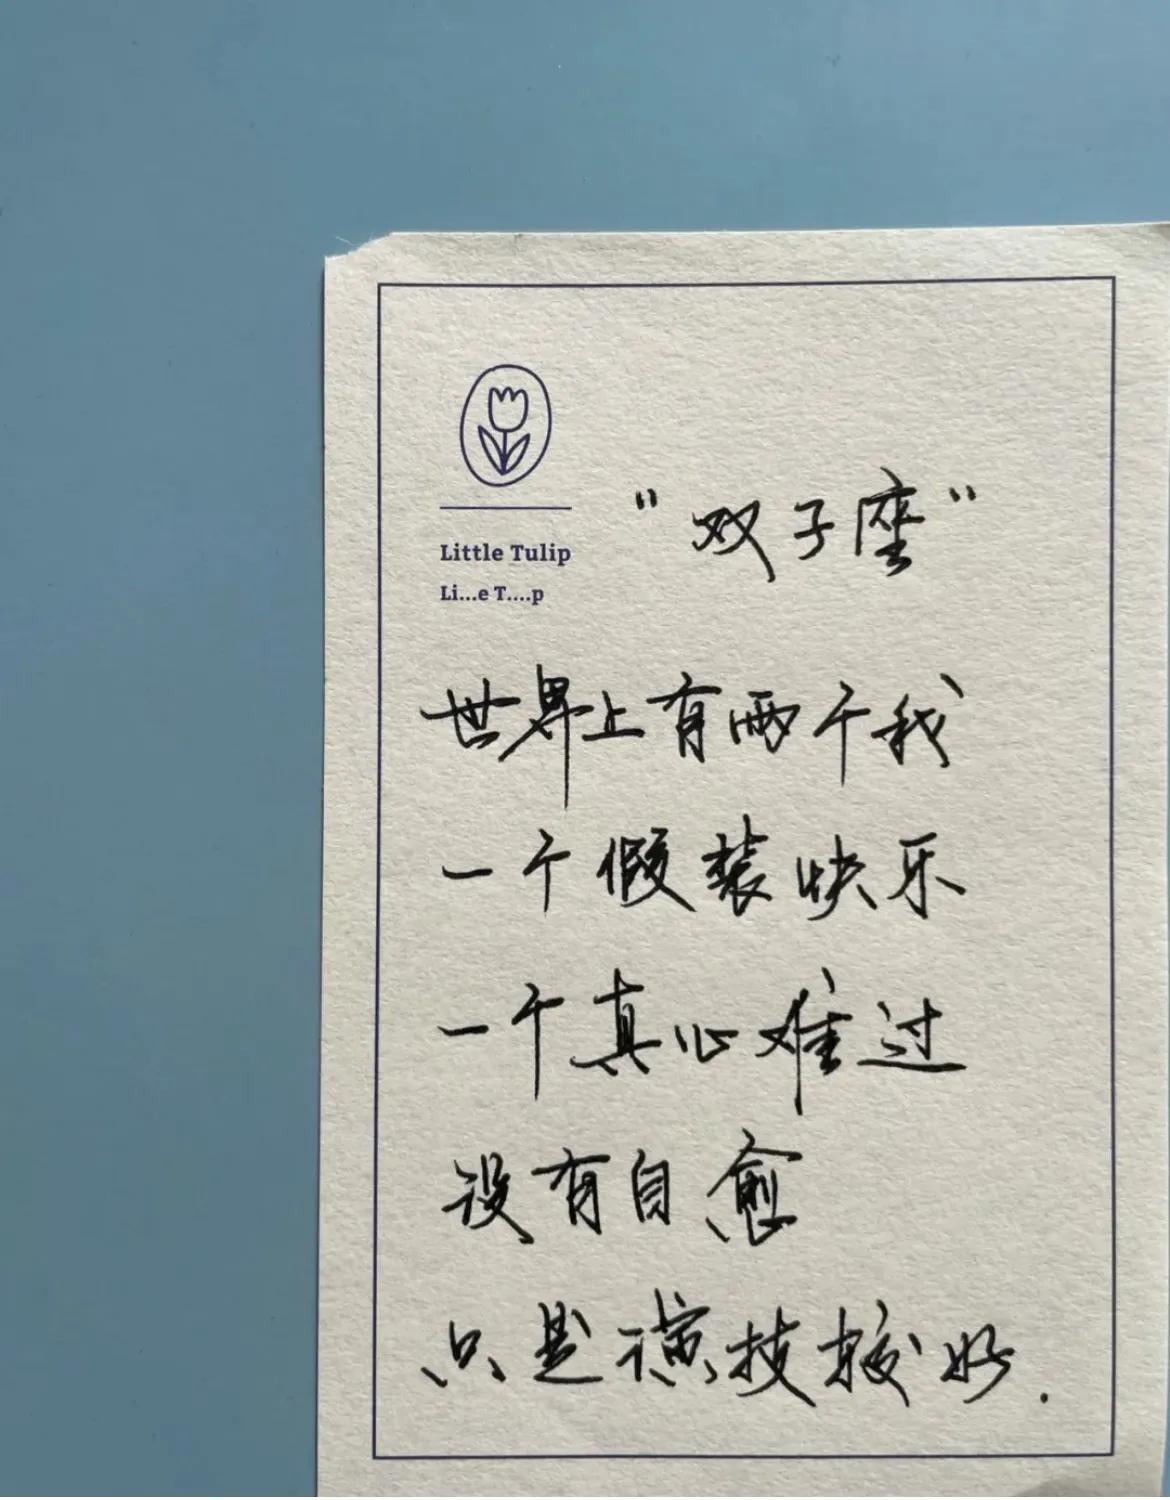 Little Tulip
Li...e T....p
“双子座”
世界上有两个我
一个假装快乐
一个真心难过
没有自愈
只是演技较好.